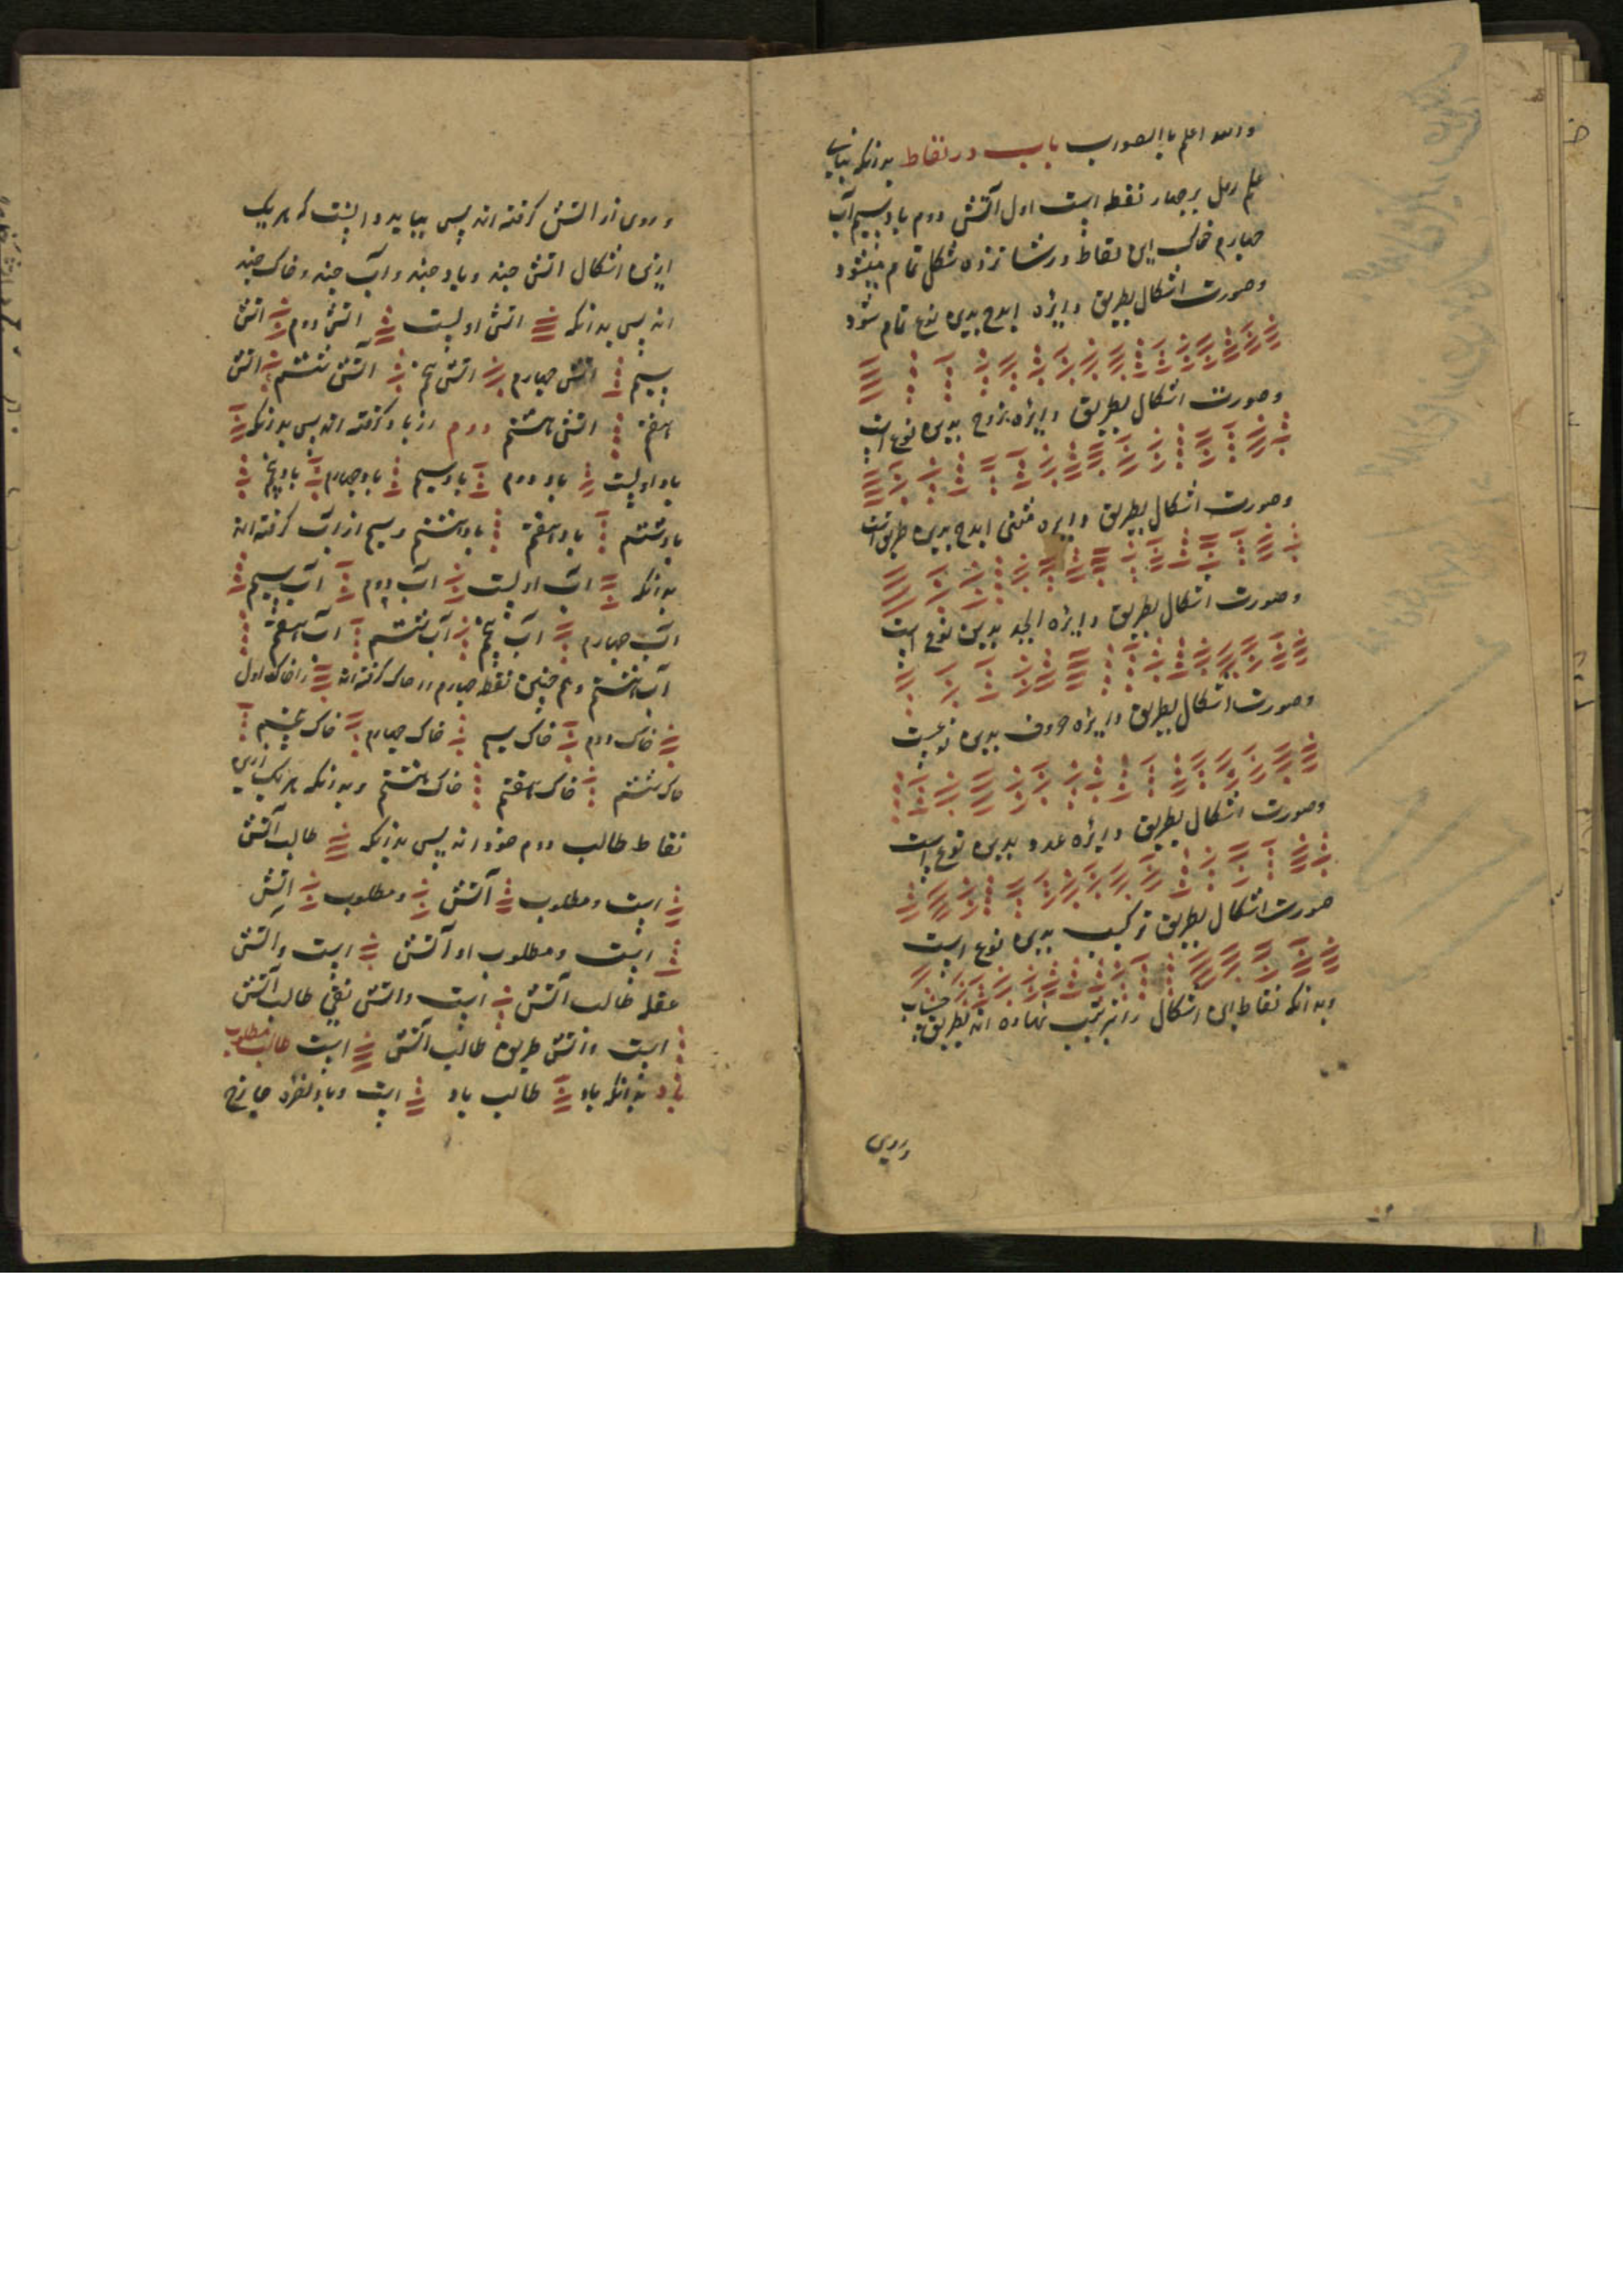 والله اعلم باالصواب باب در نقاط بدانکه بنای
علم رمل بر چهار نقطه است اول آتش دوم باد سیم آب
چهارم خاک این نقاط در شانزده شکل تمام میشود
وصورت اشکال بطریق دایره ابدح بدین نوع تمام شود
وصورت اشکال بطریق دایره بزوح بدین نوع است
وصورت اشکال بطریق دایره مثنی ابدح بدین طریق است
وصورت اشکال بطریق دایره ابجد بدین نوع است
وصورت اشکال بطریق دایره حروف بدین نوعست
وصورت اشکال بطریق دایره عدد بدین نوع است
صورت اشکال بطریق ترکیب بدین نوع است
وبدانکه نقاط این اشکال را بترتیب نهاده اند بطریق حساب
وروی
وروی از آتش گرفته اند پس بباید دانست که هر یک
ازین اشکال اتش چند وباد چند وآب چند وخاک چند
اند پس بدانکه اتش اولست اتش دوم اتش
سیم اتش چهارم اتش پنجم آتش ششم اتش
هفتم اتش هشتم دوم از باد گرفته اند پس بدانکه
باد اولست باد دوم باد سیم باد چهارم باد پنجم
باد ششم باد هفتم باد هشتم وسیم از آب گرفته اند
بدانکه آب اولست آب دوم آب سیم
آب چهارم آب پنجم آب ششم آب هفتم
آب هشتم وهم چنین نقطه چهارم از خاک گرفته اند را خاک اول
خاک دوم خاک سیم خاک چهارم خاک پنجم
خاک ششم خاک هفتم خاک هشتم وبدانکه هر یک ازین
نقاط طالب دوم خود اند پس بدانکه طالب آتش
است ومطلوب آتش ومطلوب اتش
است ومطلوب او آتش است واتش
عقله طالب آتش است واتش نقی طالب آتش
است واتش طریق طالب آتش است طالب مطلوب
باد بدانکه باد طالب باد است وباد